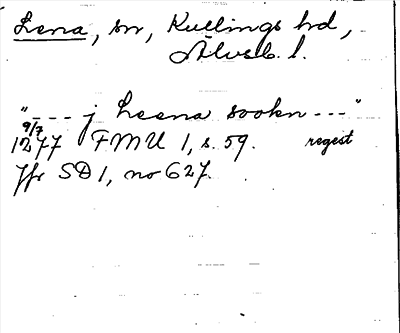 Lena, sn, Kullings hd,
Älvsb. l.
"--- j Leena sookn ---"
9/7
1277 FMU 1, s. 59. regest
Jfr SD 1, no 627.